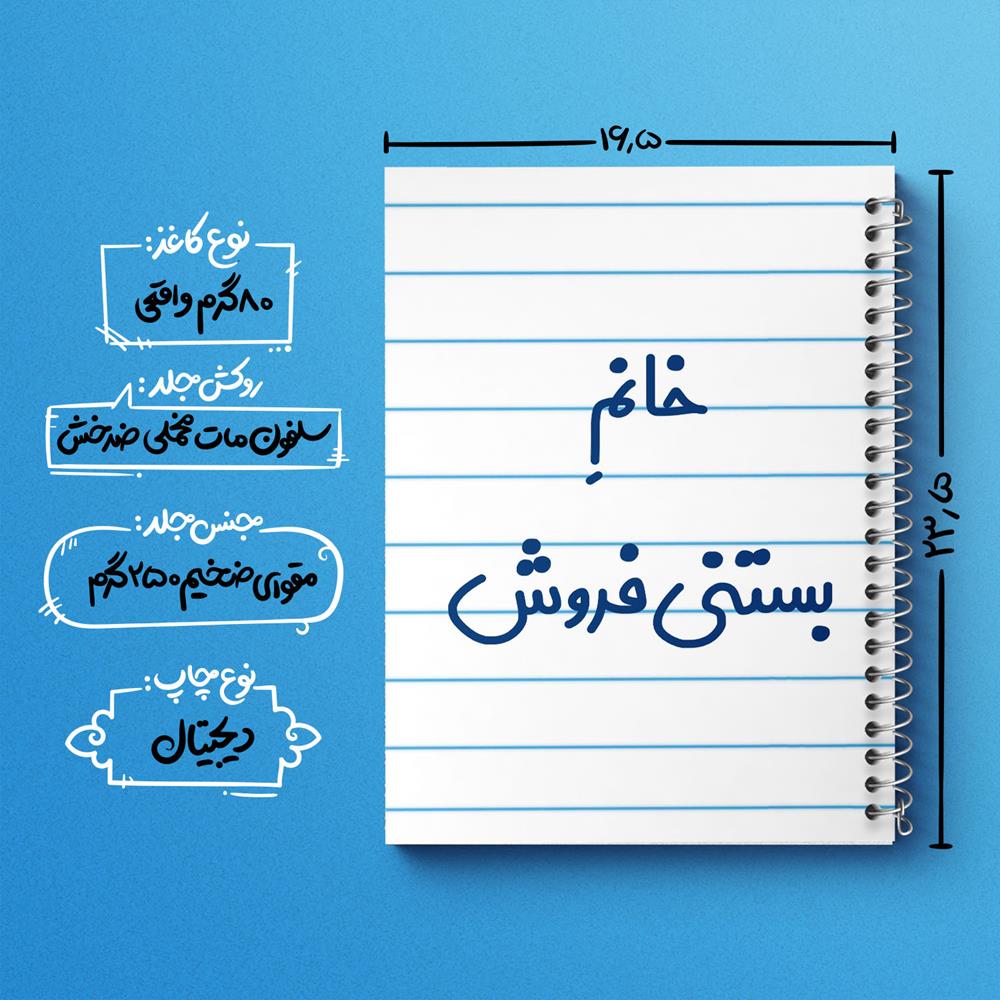 ۱۶٫۵
۲۳٫۵
خانمِ
بستنی فروش
نوع کاغذ:
۸۰گرم واقعی
روکش جلد:
سلفون مات مخملی ضدخش
جنس جلد:
مقوای ضخیم ۲۵۰گرم
نوع چاپ:
دیجیتال